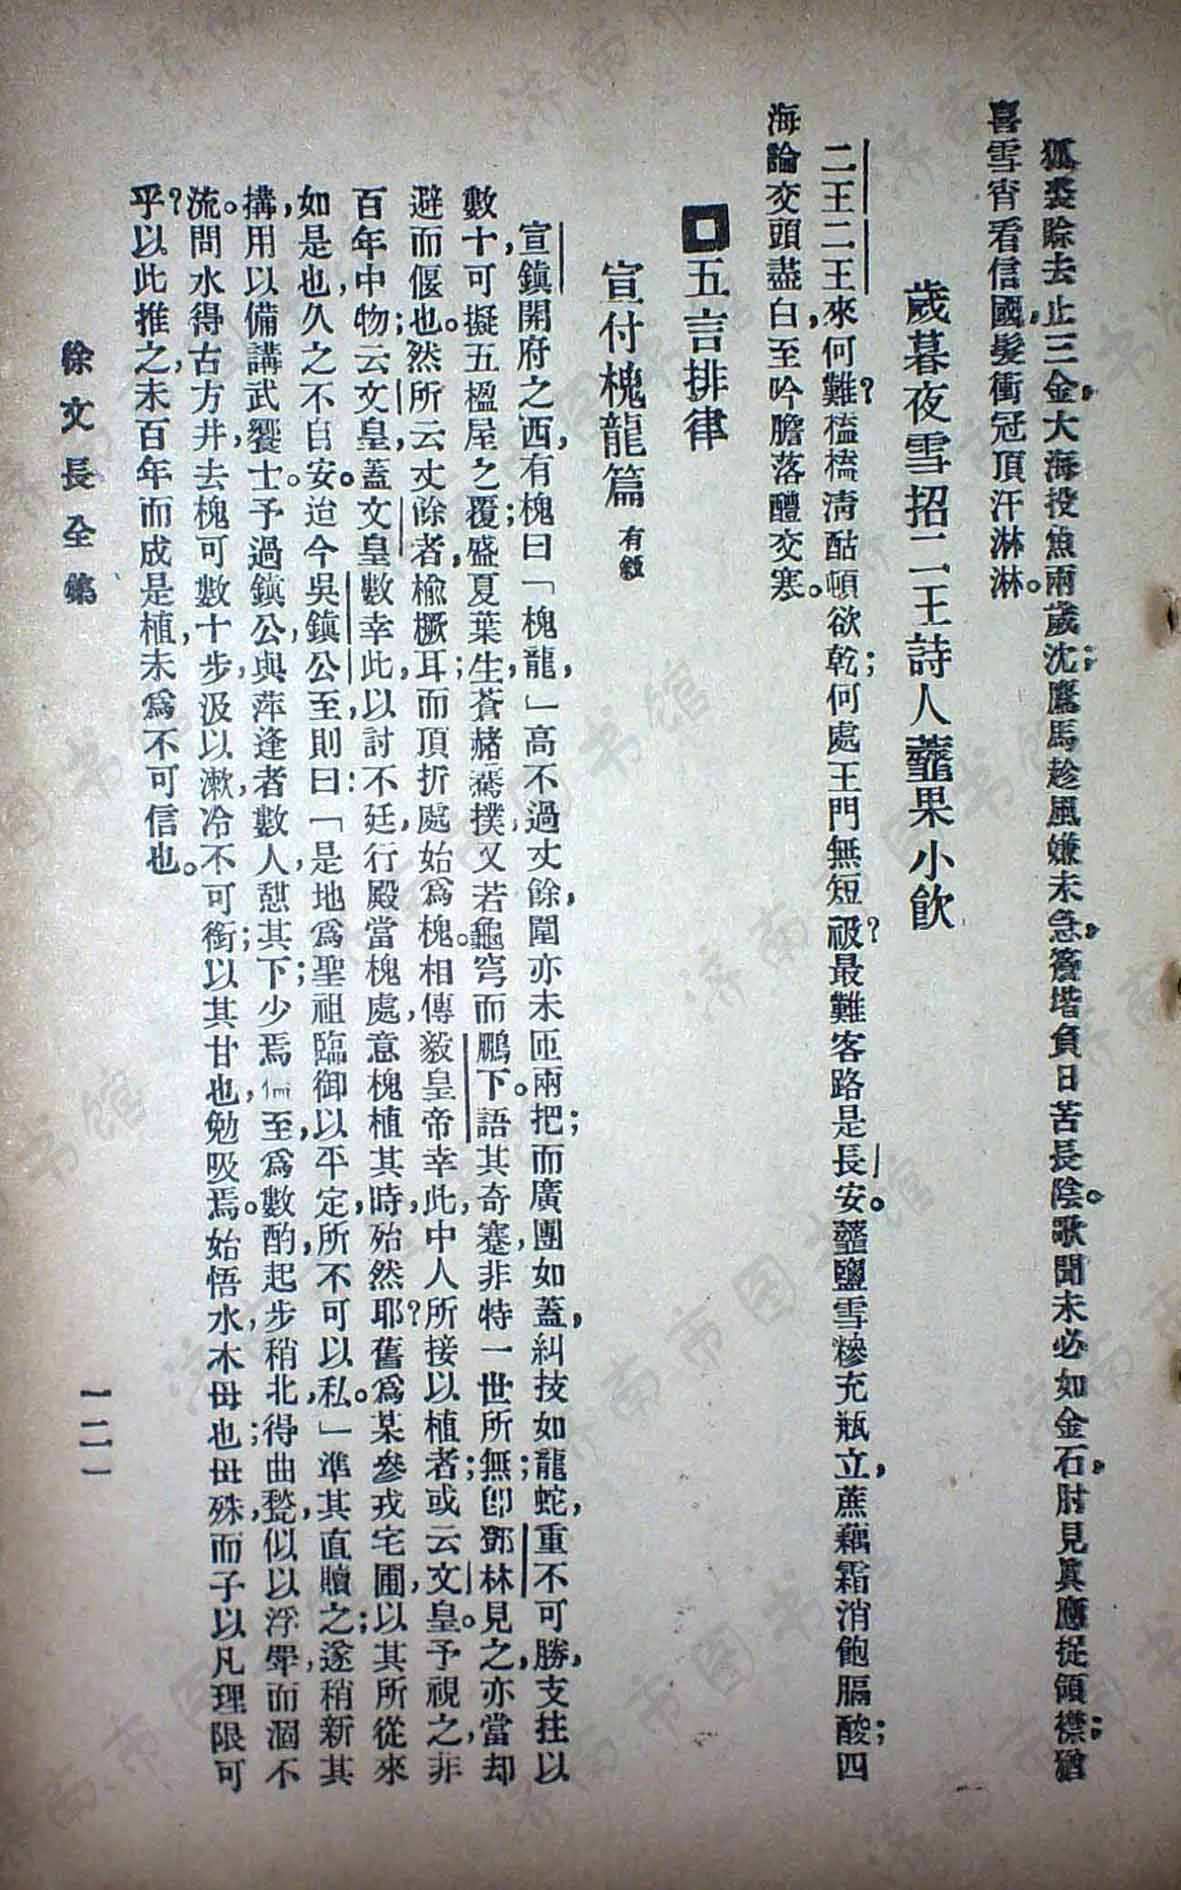 狐裘賒去止三金，大海投魚兩歲沈；鷹馬趁風嫌未急，簷堦負日苦長陰。歌聞未必如金石，肘見眞應捉領襟；猶
喜雪宵看信國，髮衝冠頂汗淋淋。
歲暮夜雪招二王詩人虀果小飲
二王二王來何難？榼橋淸酤頓欲乾；何處王門無短𧙕？最難客路是長安。虀鹽雪糝充瓶立，蔗藕霜消飽膈酸；四
海論交頭盡白，至吟膽落醴交寒。
五言排律
宣付槐龍篇 有敘
宣鎭開府之西，有槐曰「槐龍，」高不過丈餘，圍亦未匝兩把；而廣團如蓋，糾技如龍蛇，重不可勝，支拄以
數十，可擬五楹屋之覆；盛夏葉生，蒼赭鶱撲，又若龜穹而鵬下。語其奇蹇，非特一世所無；卽鄧林見之，亦當却
避而偃也。然所云丈餘者，楡橛耳；而頂折處始爲槐。相傳毅皇帝幸此，中人所接以植者；或云文皇。予視之，非
百年中物；云文皇，蓋文皇數幸此，以討不廷，行殿當槐處，意槐植其時，殆然耶？舊爲某參戎宅圃，以其所從來
如是也，久之不自安。迨今吳鎭公至，則曰：「是地爲聖祖臨御以平定，所不可以私。」準其直贖之；遂稍新其
搆，用以備講武饗士。予過鎭公，與萍逢者數人憇其下；少焉至，爲數酌，起步稍北，得曲甃，似以浮斝而涸不
流。問水，得古方井，去槐可數十步，汲以漱，冷不可銜；以其甘也，勉吸焉。始悟水，木母也；母殊而子以凡理限，可
乎？以此推之，未百年而成是植，未爲不可信也。
徐文長全集
一二一